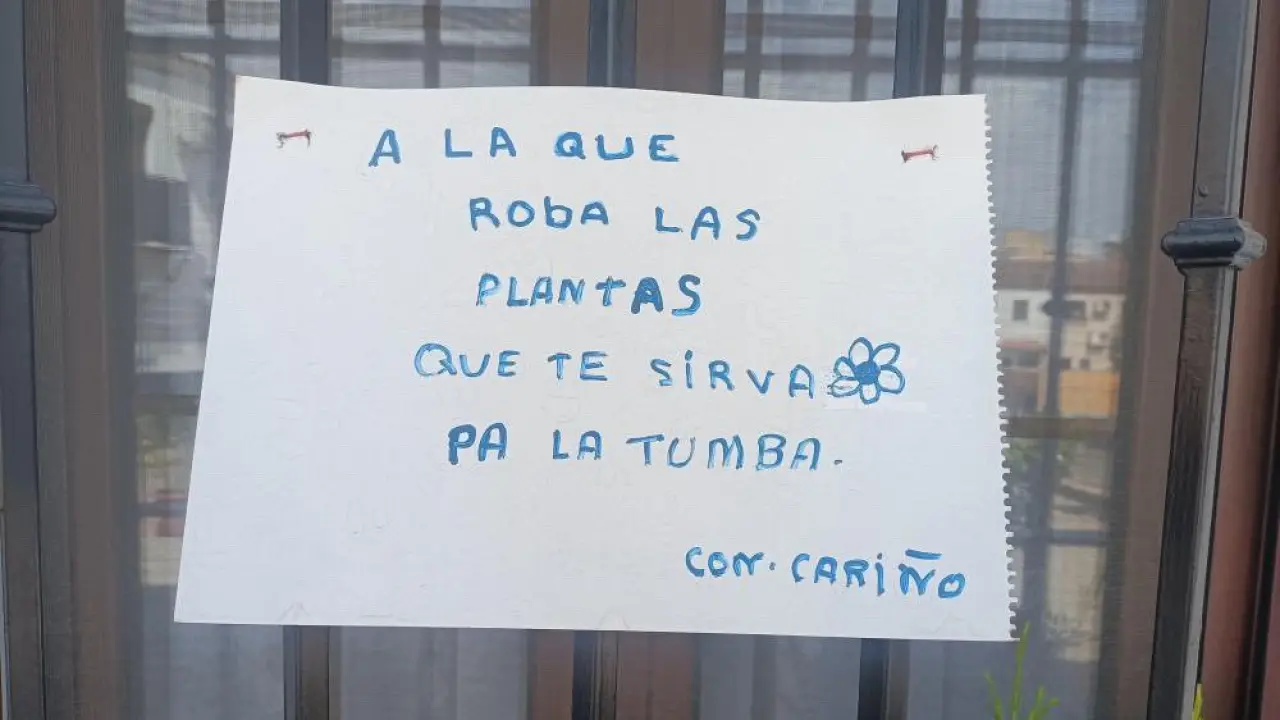 A LA QUE
ROBA LAS
PLANTAS
QUE TE SIRVA
PA LA TUMBA.
CON. CARIÑO